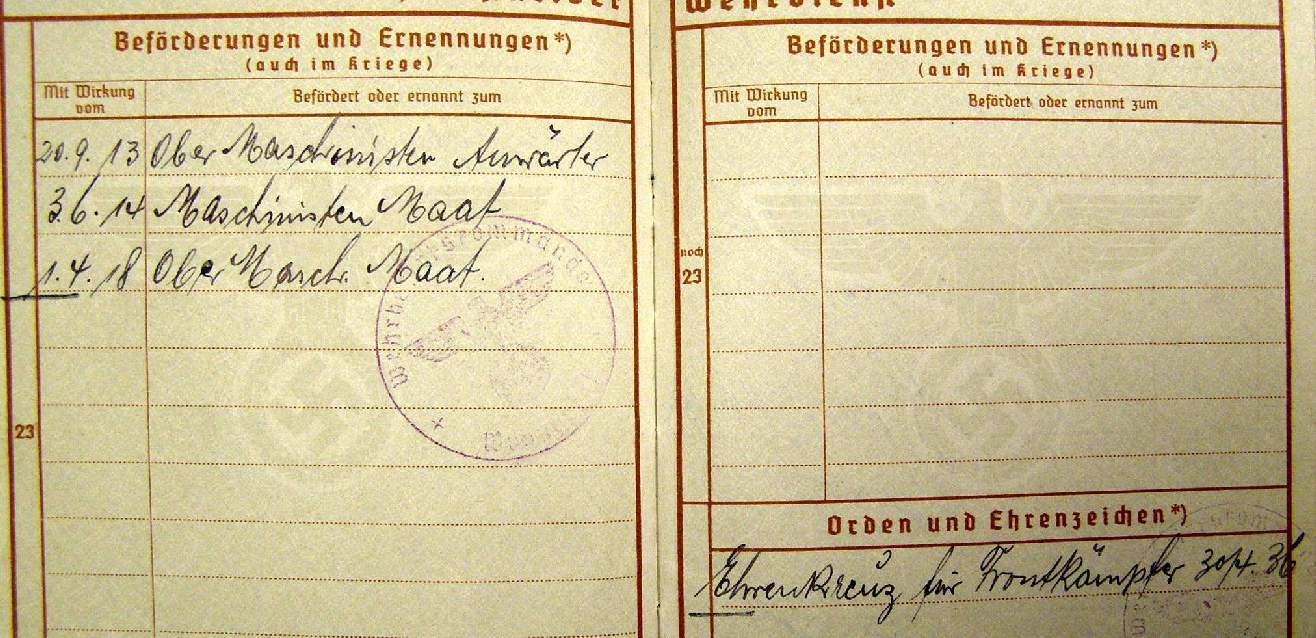 Wehrdienst
Beförderungen und Ernennungen*)
(auch im Kriege)
Mit Wirkung
vom
Befördert oder ernannt zum
20.9.13 Ober Maschinisten Anwärter
3.6.14 Maschinisten Maat
1.4.18 Ober Masch. Maat.
23
Beförderungen und Ernennungen*)
(auch im Kriege)
Mit Wirkung
vom
Befördert oder ernannt zum
noch
23
Orden und Ehrenzeichen*)
Ehrenkreuz für Frontkämpfer